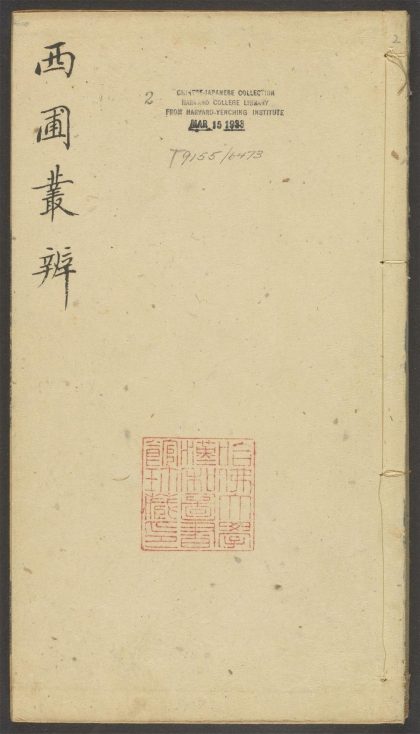 西圃叢辨
2
CHINESE-JAPANESE COLLECTION
HARVARD COLLEGE LIBRARY
FROM HARVARD-YENCHING INSTITUTE
MAR 15 1933
T9155/6473
2
哈佛大學
漢和圖書
館珍藏印